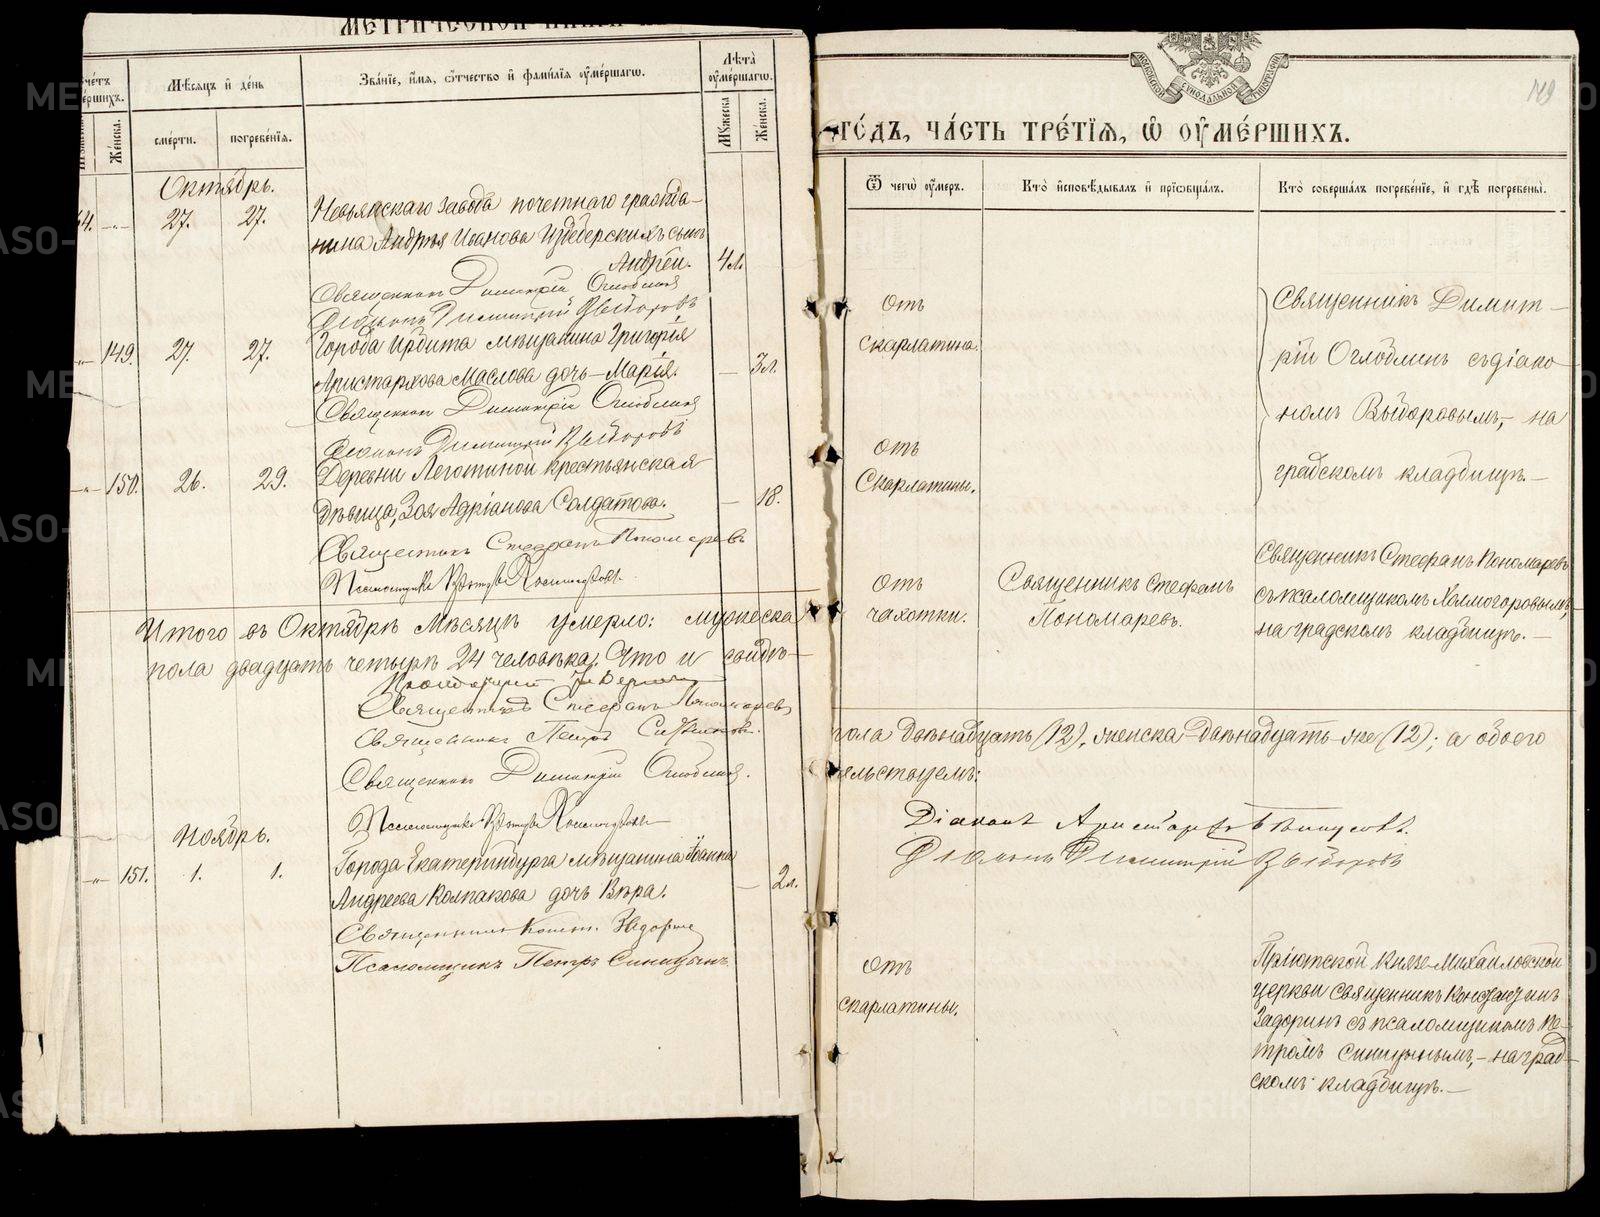 МЕТРИЧЕСКОЙ
Мѣсяцъ и день
Званїе, имя, отчество и фамилїя умершагѡ.
Лѣта
умершагѡ.
смерти.
погребенїя.
Женска.
Мужеска
Женска.
Октябрь.
27. 27. Невьянскаго завода почетнаго гражда-
нина Андрея Иванова сынъ
Андрей. 4 л.
Священникъ Димитрій Оглоблинъ
Діаконъ Димитрій Выборовъ
149. 27. 27. Города Ирбита мѣщанина Григорія
Аристархова Маслова дочь Марія. — 3 л.
Священникъ Димитрій Оглоблинъ
Діаконъ Димитрій Выборовъ
150. 26. 29. Деревни Леготиной крестьянская
дѣвица, Зоя Адріанова Солдатова. — 18.
Священникъ Стефанъ Пономаревъ
Псаломщикъ
Итого въ Октябрѣ мѣсяцѣ умерло: мужеска
пола двадцать четыре 24 человѣка. Что и свидѣ-
Священникъ Стефанъ Пономаревъ
Священникъ Петръ
Священникъ Димитрій Оглоблинъ.
Псаломщикъ
Ноябрь.
151. 1. 1. Города Екатеринбурга мѣщанина Іоанна
Андреева Колпакова дочь Вѣра. — 2 л.
Священникъ Конст. Задоринъ
Псаломщикъ Петръ Синицынъ
169
ГОДЪ, ЧАСТЬ ТРЕТЇЯ, Ѡ УМЕРШИХЪ.
Ѿ чегѡ умеръ.
Кто исповѣдывалъ и прїобщалъ.
Кто совершалъ погребенїе, и гдѣ погребены.
Отъ
скарлатина.
Священникъ Димит-
рій Оглоблинъ съ діако-
номъ Выборовымъ, на
градскомъ кладбищѣ.—
Отъ
Скарлатины.
Отъ
чахотки.
Священникъ Стефанъ
Пономаревъ.
Священникъ Стефанъ Пономаревъ
съ псаломщикомъ Холмогоровымъ,
на градскомъ кладбищѣ.—
пола двѣнадцать (12), женска двѣнадцать-же (12); а обоего
тельствуемъ:
Діаконъ Аристархъ
Діаконъ Димитрій Выборовъ
Отъ
скарлатины.
Пріютской Князе-Михаиловской
церкви священникъ Константинъ
Задоринъ съ псаломщикомъ Пе-
тромъ Синицынымъ,- на град-
скомъ кладбищѣ.—